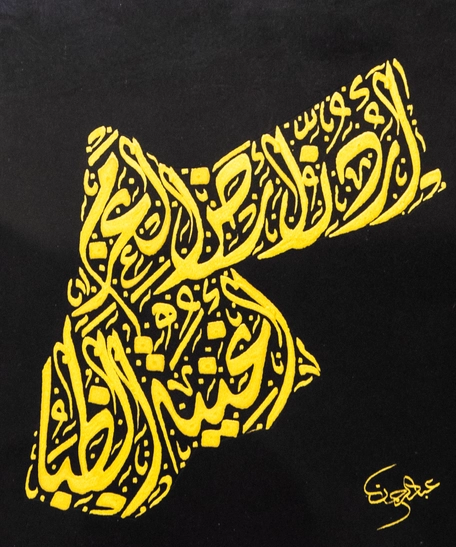 أردن أرض العزم
أغنية الظبا